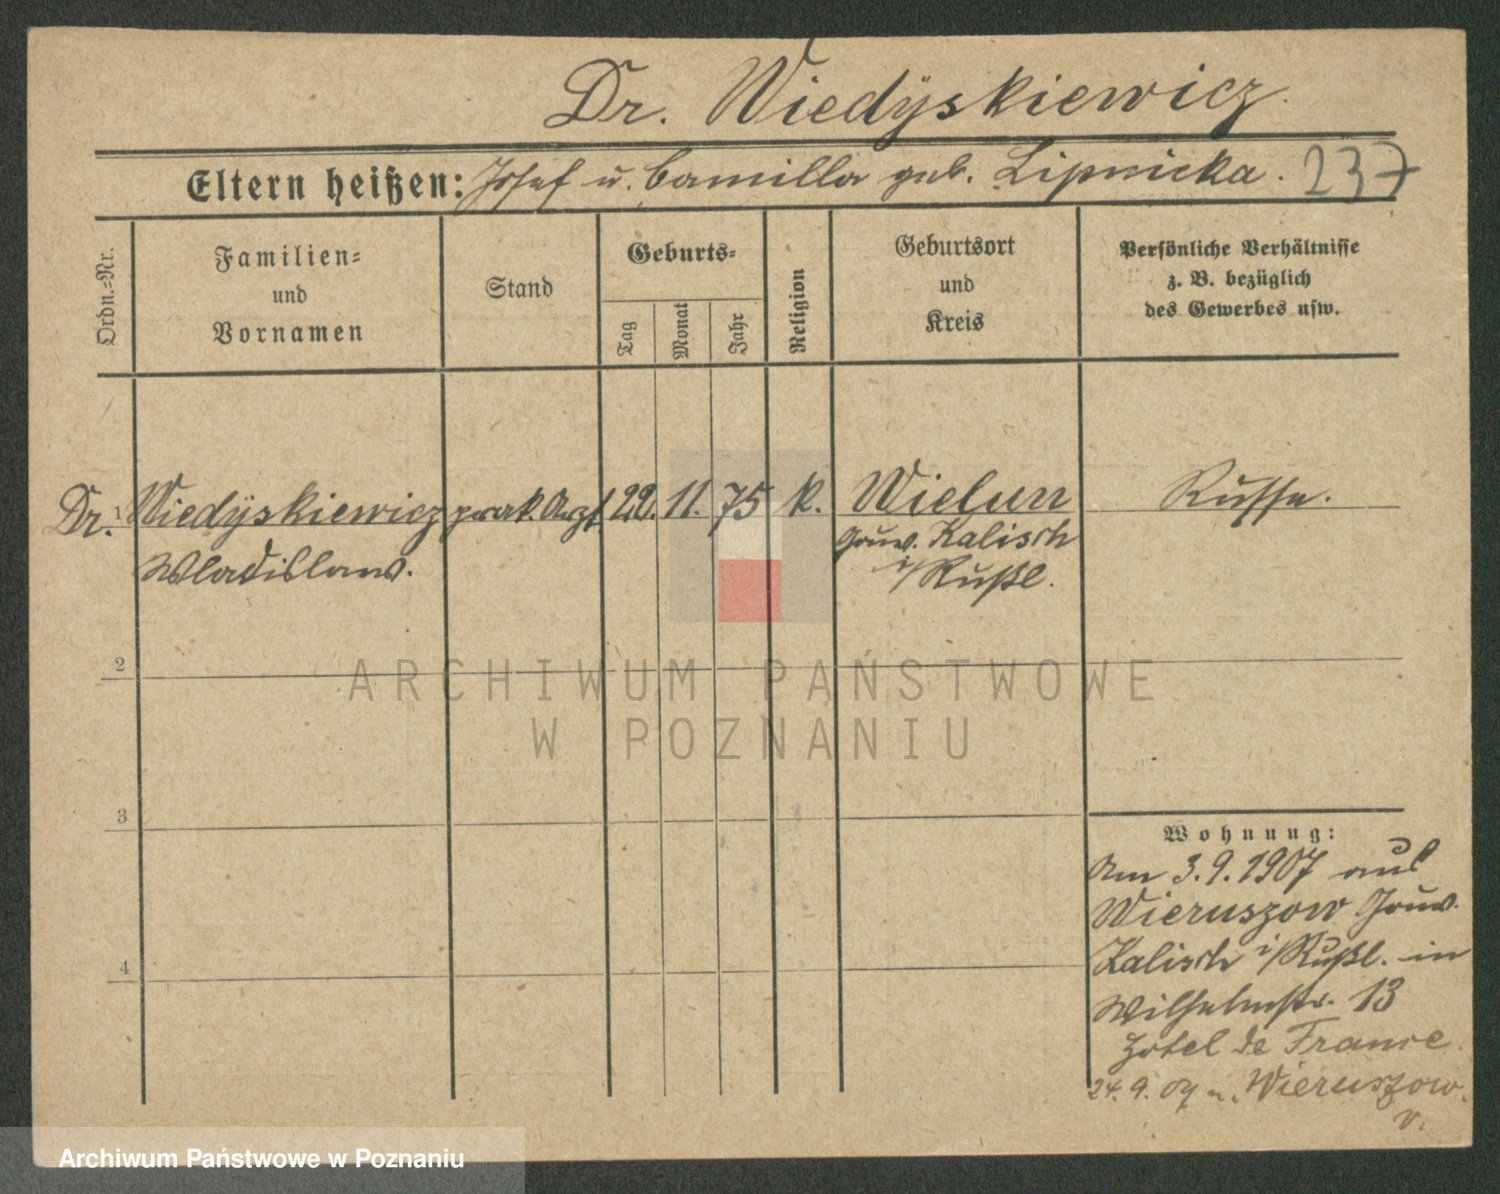 Dr. Wiedyskiewicz.
Eltern heißen: Josef u. Camilla geb. Lipnicka. 237
Ordn.-Nr.
Familien-
und
Vornamen
Stand
Geburts-
Tag
Monat
Jahr
Religion
Geburtsort
und
Kreis
Persönliche Verhältnisse
z. B. bezüglich
des Gewerbes usw.
Dr. 1 Wiedyskiewicz prak. Arzt 22. 11. 75 k. Wielun Russe.
Wladislaus. Gouv. Kalisch
i/Rußl.
2
ARCHIWUM PAŃSTWOWE
W POZNANIU
3
Wohnung:
Am 3.9.1907 aus
Wieruszow Gouv.
Kalisch i/Rußl. in
Wilhelmstr. 13
Hotel de France.
24.9.07 n. Wieruszow.
v.
4
Archiwum Państwowe w Poznaniu